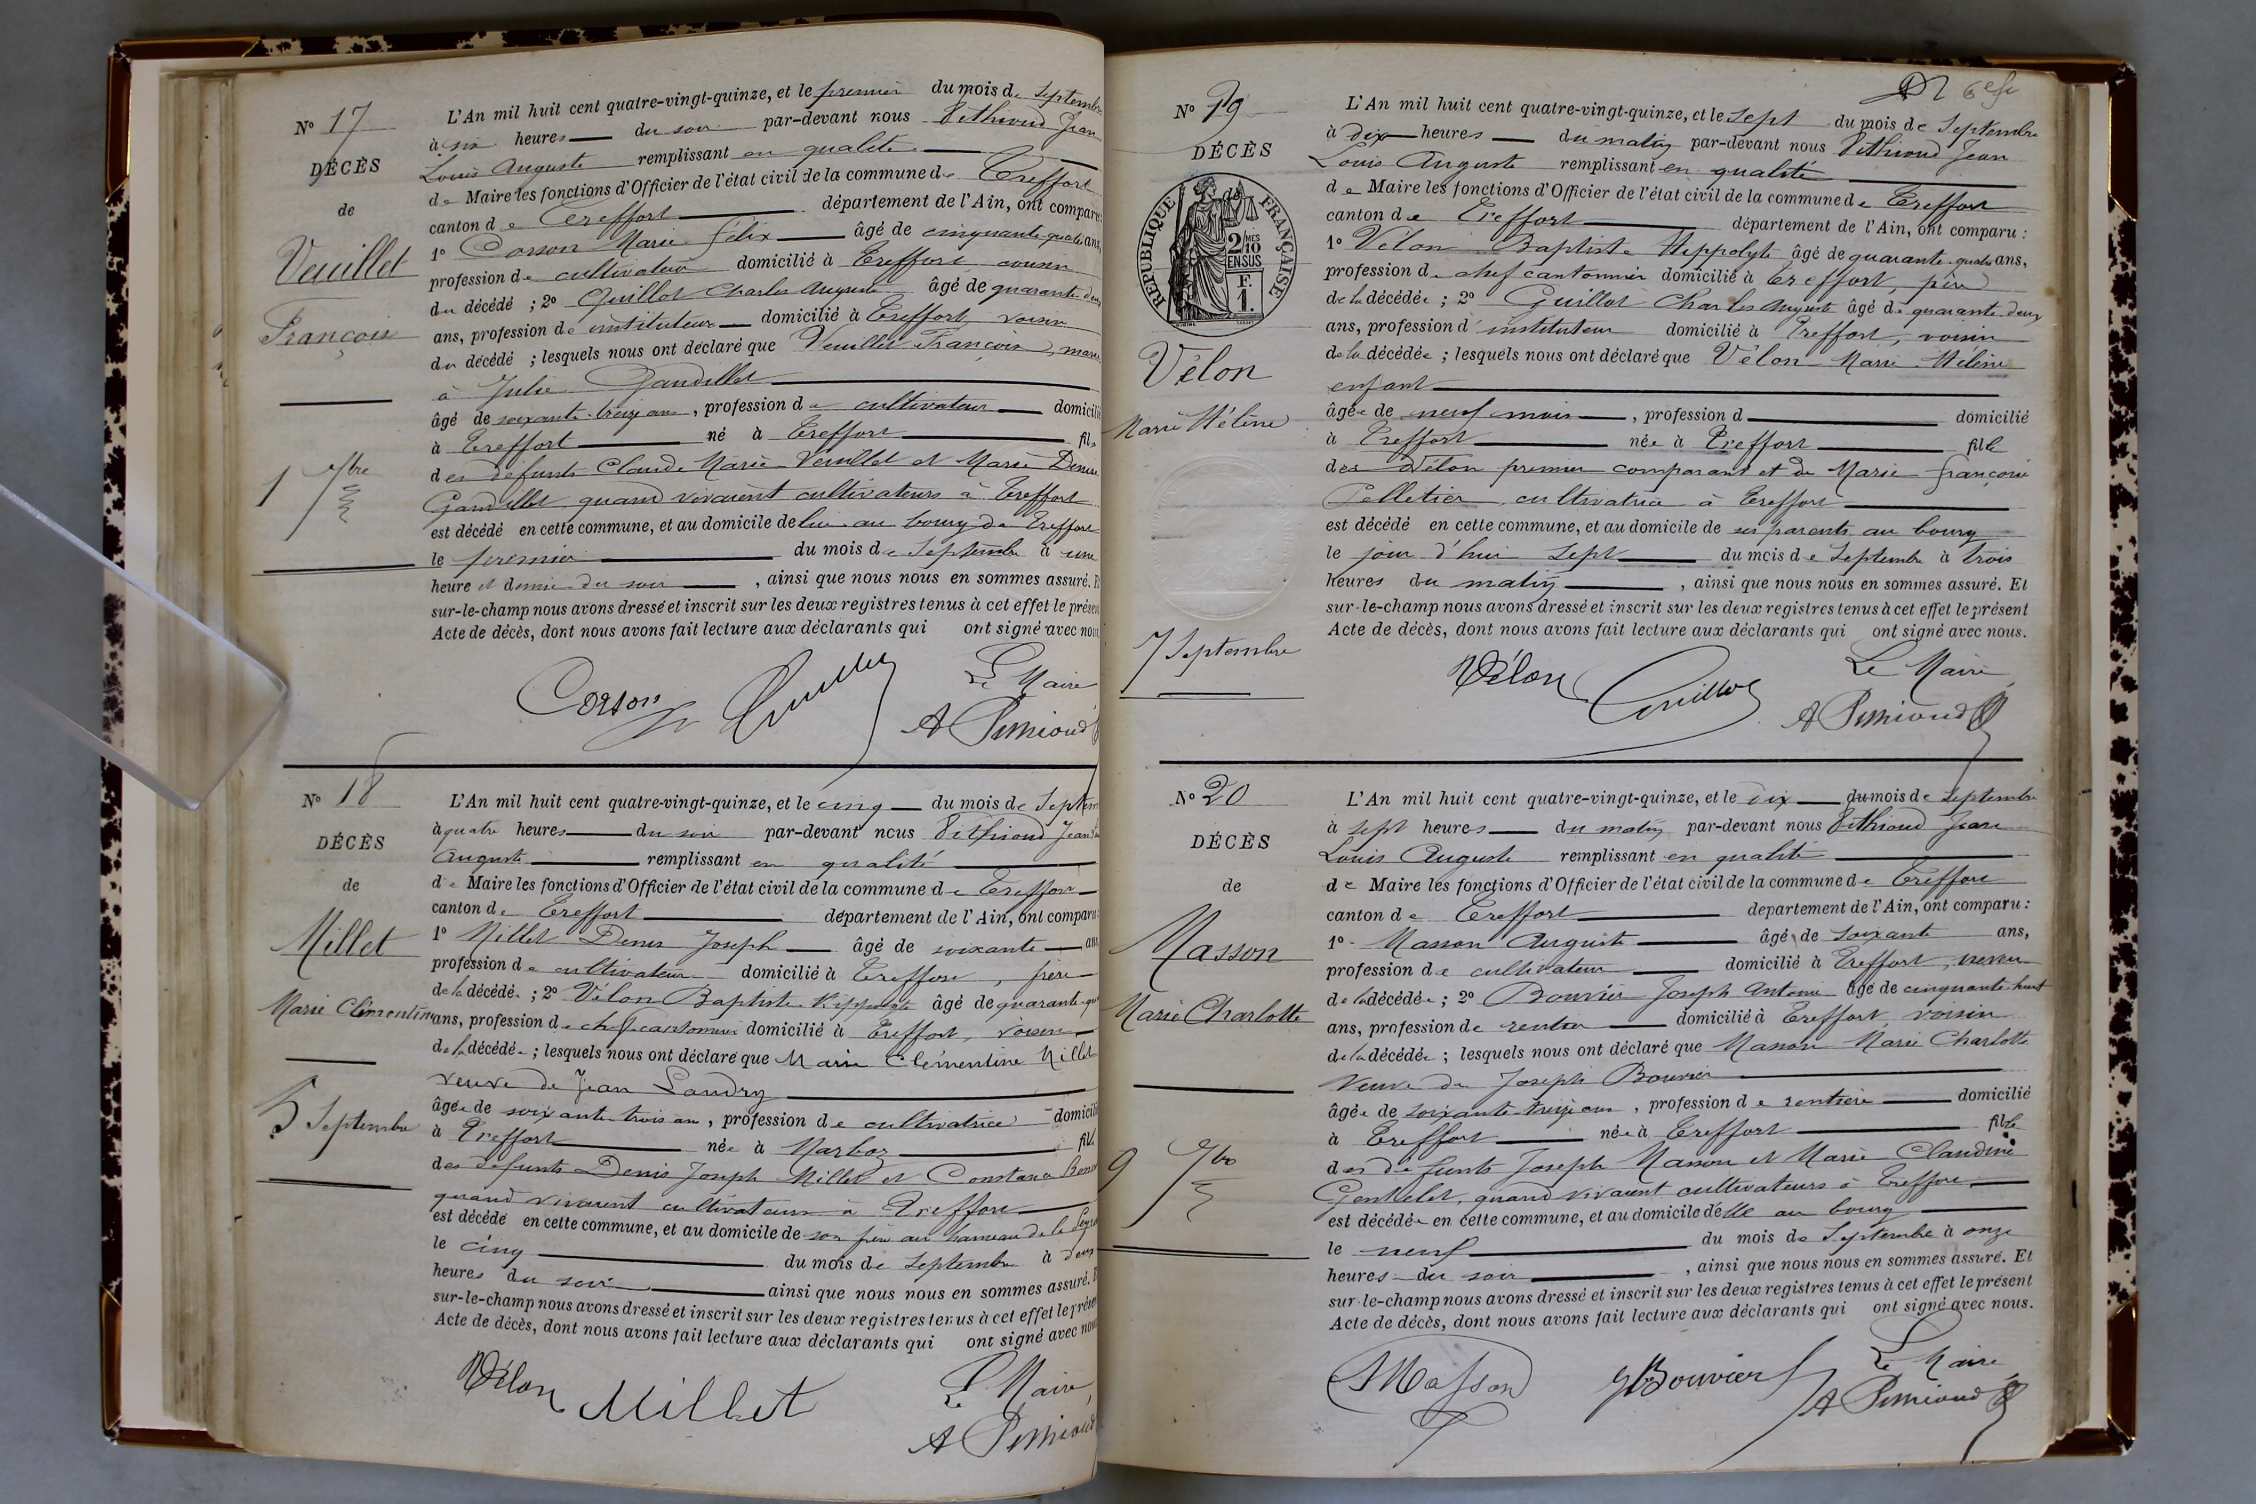 N° 17
DÉCÈS
de
Veuillet
François
1 7bre
L'An mil huit cent quatre-vingt-quinze, et le premier du mois de Septembre
à six heures du soir par-devant nous Pithioud Jean
Louis Auguste remplissant en qualité
de Maire les fonctions d'Officier de l'état civil de la commune de Treffort
canton de Treffort département de l'Ain, ont comparu
1° Corson Marie Félix âgé de cinquante quatre ans,
profession de cultivateur domicilié à Treffort cousin
du décédé ; 2° Guillot Charles Auguste âgé de quarante deux
ans, profession de instituteur domicilié à Treffort, voisin
du décédé ; lesquels nous ont déclaré que Veuillet François, mari
à Julie Gandillet
âgé de soixante treize ans, profession de cultivateur domicilié
à Treffort né à Treffort fils
des défunts Claude Marie Veuillet et Marie Denise
Gandillet quand vivaient cultivateurs à Treffort
est décédé en cette commune, et au domicile de lui au bourg de Treffort
le premier du mois de Septembre à une
heure et demie du soir, ainsi que nous nous en sommes assuré. Et
sur-le-champ nous avons dressé et inscrit sur les deux registres tenus à cet effet le présent
Acte de décès, dont nous avons fait lecture aux déclarants qui ont signé avec nous
Corson Guillot Le Maire
A Pithioud
N° 18
DÉCÈS
de
Millet
Marie Clémentine
5 Septembre
L'An mil huit cent quatre-vingt-quinze, et le cinq du mois de Septembre
à quatre heures du soir par-devant nous Pithioud Jean Louis
Auguste remplissant en qualité
de Maire les fonctions d'Officier de l'état civil de la commune de Treffort
canton de Treffort département de l'Ain, ont comparu :
1° Millet Denis Joseph âgé de soixante ans
profession de cultivateur domicilié à Treffort, frère
de la décédée ; 2° Vélon Baptiste Hippolyte âgé de quarante quatre
ans, profession de chef cantonnier domicilié à Treffort, voisin
de la décédée ; lesquels nous ont déclaré que Marie Clémentine Millet
veuve de Jean Landry
âgée de soixante trois ans, profession de cultivatrice domicilié
à Treffort née à Marboz fille
des défunts Denis Joseph Millet et Constance
quand vivaient cultivateurs à Treffort
est décédé en cette commune, et au domicile de son frère au hameau de la
le cinq du mois de Septembre à deux
heures du soir ainsi que nous nous en sommes assuré. Et
sur-le-champ nous avons dressé et inscrit sur les deux registres tenus à cet effet le présent
Acte de décès, dont nous avons fait lecture aux déclarants qui ont signé avec nous
Vélon Millet Le Maire,
A Pithioud
6e
N° 19
DÉCÈS
de
RÉPUBLIQUE FRANÇAISE
2/10 MES
EN SUS
F.
1.
Vélon
Marie Hélène
7 Septembre
L'An mil huit cent quatre-vingt-quinze, et le Sept du mois de Septembre
à dix heures du matin par-devant nous Pithioud Jean
Louis Auguste remplissant en qualité
de Maire les fonctions d'Officier de l'état civil de la commune de Treffort
canton de Treffort département de l'Ain, ont comparu :
1° Vélon Baptiste Hippolyte âgé de quarante quatre ans,
profession de chef cantonnier domicilié à Treffort, père
de la décédée ; 2° Guillot Charles Auguste âgé de quarante deux
ans, profession d'instituteur domicilié à Treffort, voisin
de la décédée ; lesquels nous ont déclaré que Vélon Marie Hélène
enfant
âgée de neuf mois, profession d domicilié
à Treffort née à Treffort fille
des Vélon premier comparant et de Marie Françoise
Pelletier, cultivatrice à Treffort
est décédé en cette commune, et au domicile de ses parents au bourg
le jour d'hui Sept du mois de Septembre à trois
heures du matin, ainsi que nous nous en sommes assuré. Et
sur-le-champ nous avons dressé et inscrit sur les deux registres tenus à cet effet le présent
Acte de décès, dont nous avons fait lecture aux déclarants qui ont signé avec nous.
Vélon Guillot Le Maire,
A Pithioud
N° 20
DÉCÈS
de
Masson
Marie Charlotte
9 7bre
L'An mil huit cent quatre-vingt-quinze, et le dix du mois de Septembre
à sept heures du matin par-devant nous Pithioud Jean
Louis Auguste remplissant en qualité
de Maire les fonctions d'Officier de l'état civil de la commune de Treffort
canton de Treffort département de l'Ain, ont comparu :
1° Masson Auguste âgé de soixante ans,
profession de cultivateur domicilié à Treffort, neveu
de la décédée ; 2° Bouvier Joseph Antoine âgé de cinquante huit
ans, profession de rentier domicilié à Treffort, voisin
de la décédée ; lesquels nous ont déclaré que Masson Marie Charlotte
veuve de Joseph Bouvier
âgée de soixante treize ans, profession de rentière domicilié
à Treffort née à Treffort fille
des défunts Joseph Masson et Marie Claudine
quand vivaient cultivateurs à Treffort
est décédée en cette commune, et au domicile d'elle au bourg
le neuf du mois de Septembre à onze
heures du soir, ainsi que nous nous en sommes assuré. Et
sur-le-champ nous avons dressé et inscrit sur les deux registres tenus à cet effet le présent
Acte de décès, dont nous avons fait lecture aux déclarants qui ont signé avec nous.
Masson Bouvier Le Maire,
A Pithioud